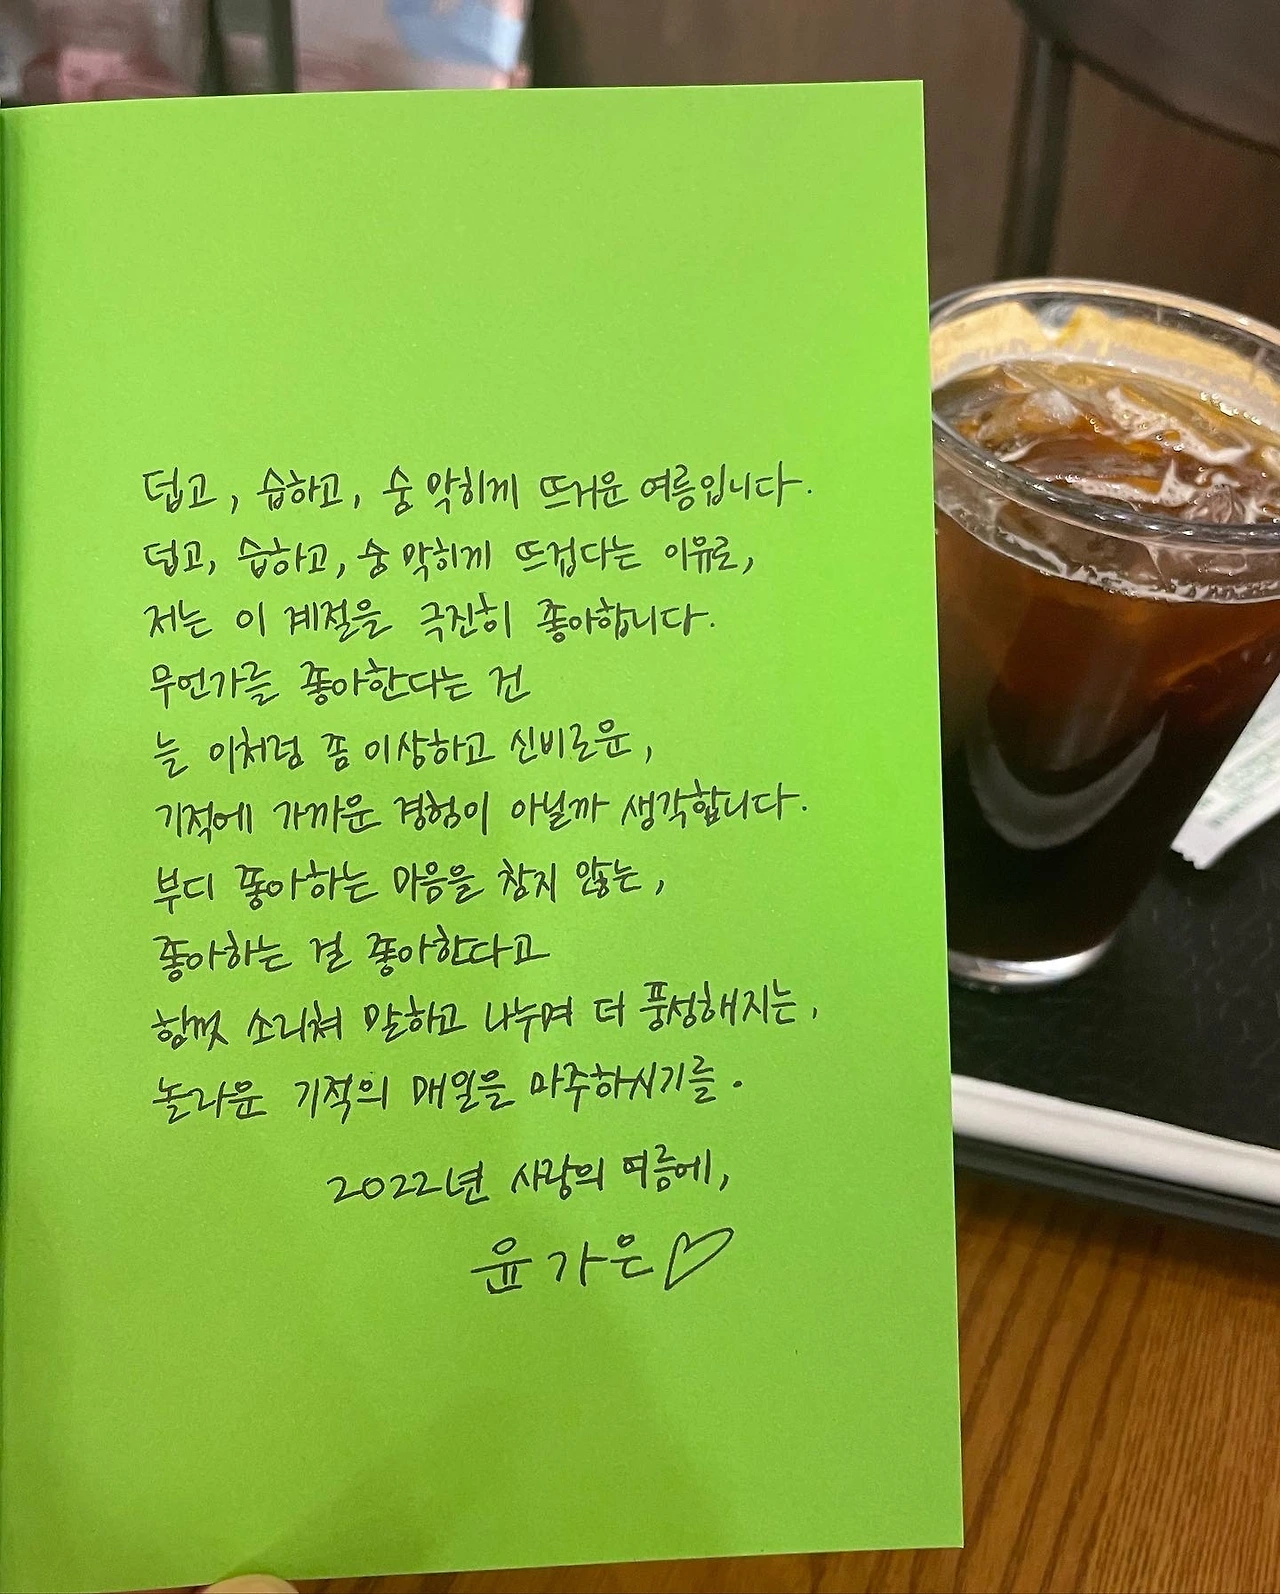 덥고, 습하고, 숨 막히게 뜨거운 여름입니다.
덥고, 습하고, 숨 막히게 뜨겁다는 이유로,
저는 이 계절을 극진히 좋아합니다.
무언가를 좋아한다는 건
늘 이처럼 좀 이상하고 신비로운,
기적에 가까운 경험이 아닐까 생각합니다.
부디 좋아하는 마음을 참지 않는,
좋아하는 걸 좋아한다고
힘껏 소리쳐 말하고 나누며 더 풍성해지는,
놀라운 기적의 매일을 마주하시기를.
2022년 사랑의 여름에,
윤가은♡